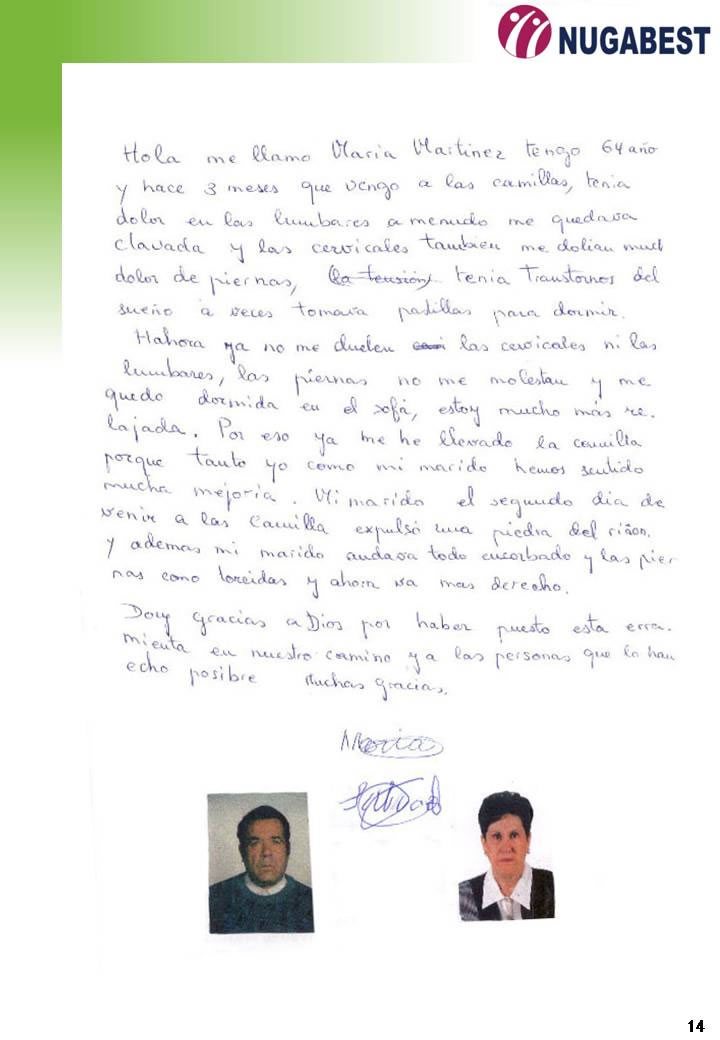 NUGABEST
Hola me llamo Maria Martinez tengo 64 año
y hace 3 meses que vengo a las camillas, tenia
dolor en las lumbares a menudo me quedava
clavada y las cervicales tambien me dolian much
dolor de piernas, la tensión tenia transtornos del
sueño a veces tomava pastillas para dormir.
Hahora ya no me duelen las cervicales ni las
lumbares, las piernas no me molestan y me
quedo dormida en el sofá, estoy mucho más re-
lajada. Por eso ya me he llevado la camilla
porque tanto yo como mi marido hemos sentido
mucha mejoria. Mi marido el segundo dia de
venir a las camilla expulsó una piedra del riñon.
y ademas mi marido andava todo encorbado y las pier
nas como torcidas y ahora va mas derecho.
Doy gracias a Dios por haber puesto esta erra-
mienta en nuestro camino y a las personas que lo han
echo posibre Muchas gracias.
Maria
14